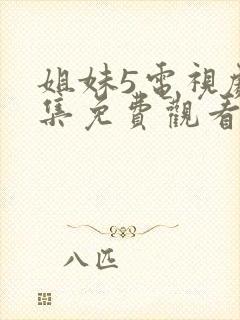 姐妹5電視劇
集免費觀看
八匹